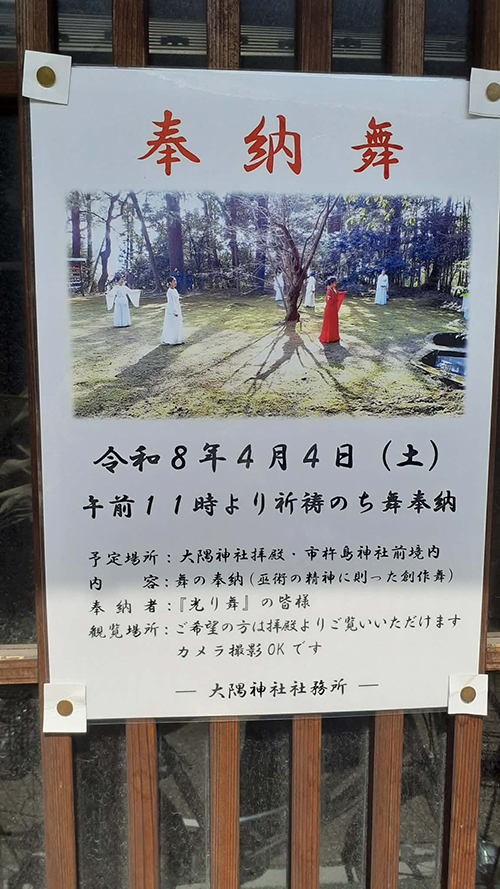 奉納舞
令和8年4月4日（土）
午前11時より祈祷のち舞奉納
予定場所：大隅神社拝殿・市杵島神社前境内
内　　容：舞の奉納（巫術の精神に則った創作舞）
奉納者：『光り舞』の皆様
観覧場所：ご希望の方は拝殿よりご覧いいただけます
カメラ撮影OKです
― 大隅神社社務所 ―